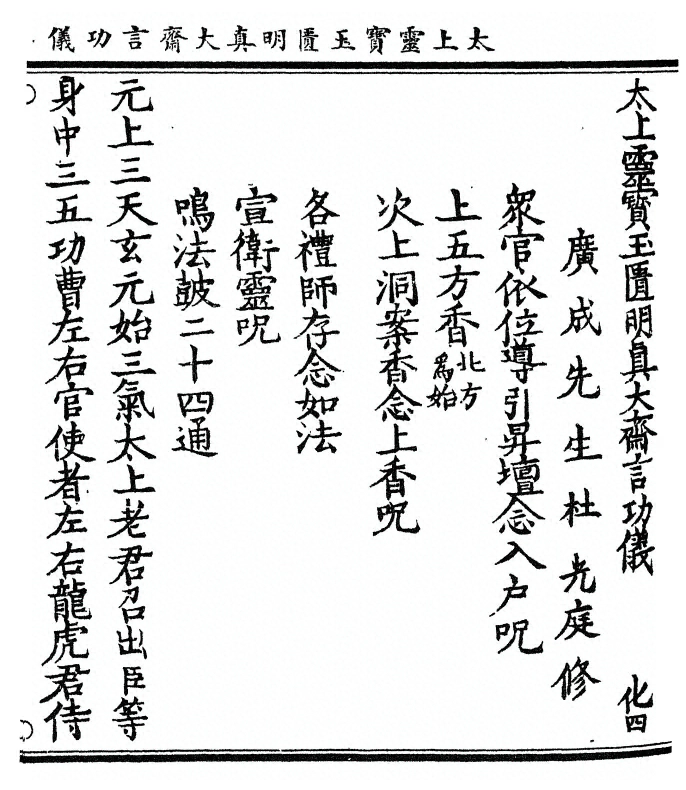 太上靈寶玉匱明真大齋言功儀
太上靈寶玉匱明真大齋言功儀 化四
廣成先生杜光庭修
衆官依位導引昇壇念入户呪
上五方香北方為始
次上洞案香念上香呪
各禮師存念如法
宣衛靈呪
鳴法鼓二十四通
元上三天玄元始三氣太上老君召出臣等
身中三五功曹左右官使者左右龍虎君侍